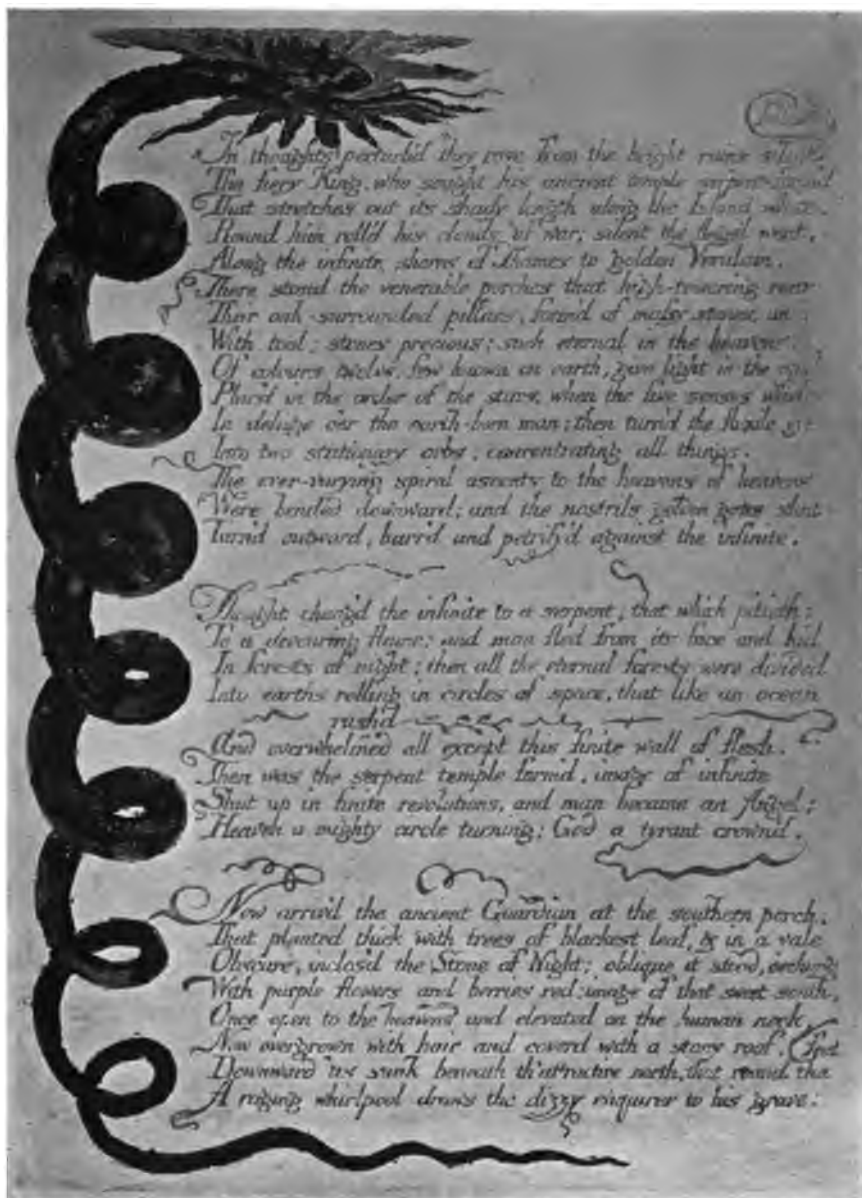 In thoughts perturb'd they rove from the bright ruins
The fiery King, who sought his ancient temple serpent-form'd
That stretches out its shady length along the Island white.
Round him roll'd his clouds of war; silent the Angel went,
Along the infinite shores of Thames to golden Verulam.
There stand the venerable porches that high-towering rear
Their oak-surrounded pillars, form'd of massy stones, un
With tool; stones precious; such eternal in the heavens,
Of colours twelve, few known on earth, give light in the
Plac'd in the order of the stars, when the five senses whelm'd
In deluge o'er the earth-born man; then turn'd the fluxile
Into two stationary orbs, concentrating all things.
The ever-varying spiral ascents to the heavens of heavens
Were bended downward; and the nostrils golden gates shut
Turn'd outward, barr'd and petrify'd against the infinite.
Thought chang'd the infinite to a serpent; that which pitieth:
To a devouring flame; and man fled from its face and hid
In forests of night; then all the eternal forests were divided
Into earths rolling in circles of space, that like an ocean
rush'd
And overwhelmed all except this finite wall of flesh.
Then was the serpent temple form'd, image of infinite
Shut up in finite revolutions, and man became an Angel;
Heaven a mighty circle turning; God a tyrant crown'd.
Now arriv'd the ancient Guardian at the southern porch,
That planted thick with trees of blackest leaf, & in a vale
Obscure, inclos'd the Stone of Night; oblique it stood, o'erhung
With purple flowers and berries red; image of that sweet south,
Once open to the heavens and elevated on the human neck,
Now overgrown with hair and cover'd with a stony roof,
Downward 'tis sunk beneath th' attractive north, that round the feet
A raging whirlpool draws the dizzy enquirer to his grave: